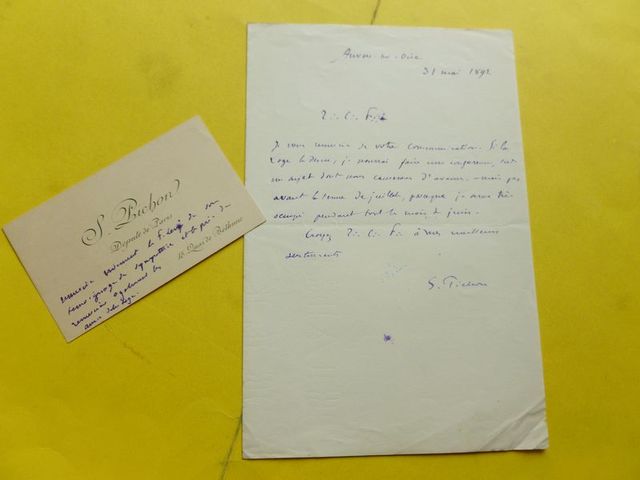 S. Pichon
Député de Paris
10 Quai de Béthune
remercie vivement le F∴ de son
témoignage de sympathie et le prie de
remercier également les
amis de la Loge.
Auvers-sur-Oise
31 mai 1892
T∴ C∴ F∴
Je vous remercie de votre communication. Si la
Loge le désire, je pourrai faire une conférence, sur
un sujet dont nous causerons d'avance – mais pas
avant la tenue de juillet, parce que je suis très
occupé pendant tout le mois de juin.
Croyez T∴ C∴ F∴ à mes meilleurs
sentiments
S. Pichon